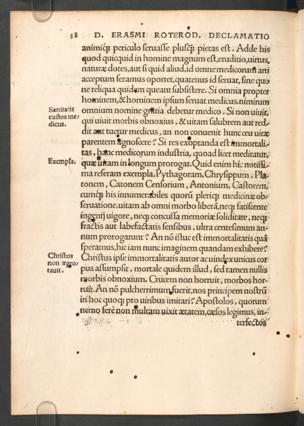 38 D. ERASMI ROTEROD. DECLAMATIO
animiq; periculo seruasse plusq̃ pietas est. Adde his
quod quicquid in homine magnum est, eruditio, uirtus,
naturæ dotes, aut si quid aliud, id omne medicorum arti
acceptum feramus oportet, quatenus id seruat, sine quo
ne reliqua quidem queant subsistere. Si omnia propter
hominem, & hominem ipsum seruat medicus, nimirum
Sanitatis
custos me
dicus.
omnium nomine gratia debetur medico. Si non uiuit,
qui uiuit morbis obnoxius, & uitam salubrem aut red-
dit aut tuetur medicus, an non conuenit hunc ceu uitæ
parentem agnoscere? Si res exoptanda est immortali-
tas, hanc medicorum industria, quoad licet meditatur,
Exempla.
quæ uitam in longum prorogat. Quid enim hic notissi-
ma referam exempla, Pythagoram, Chrysippum, Pla-
tonem, Catonem Censorium, Antonium, Castorem,
cumq; his innumerabiles quorũ pleriq; medicinæ ob-
seruatione uitam ab omni morbo liberã, neq; fatiscente
ingenij uigore, neq; concussa memoriæ soliditate, neq;
fractis aut labefactatis sensibus, ultra centesimum an-
num prorogarunt? An nõ istuc est immortalitatis quã
speramus, hic iam nunc imaginem quandam exhibere?
Christus
non ægro-
tauit.
Christus ipse immortalitatis autor ac uindex unicus cor
pus assumpsit, mortale quidem illud, sed tamen nullis
morbis obnoxium. Crucem non horruit, morbos hor-
ruit. An nõ pulcherrimum fuerit, nos principem nostrũ
in hoc quoq; pro uiribus imitari? Apostolos, quorum
nemo ferè non multam uixit ætatem, cæsos legimus, in-
terfectos